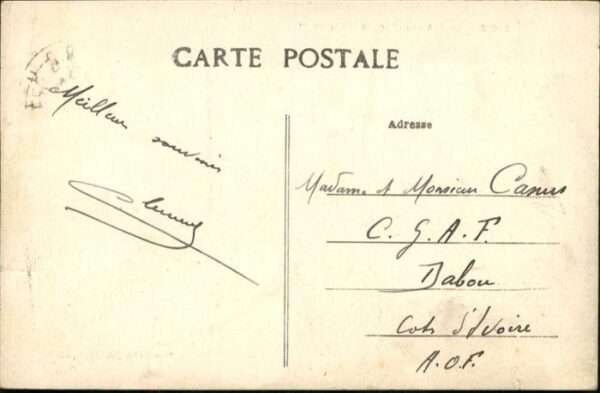 CARTE POSTALE
Meilleur souvenir
Adresse
Madame et Monsieur Camus
C. G. A. F.
Dabou
Cote d'Ivoire
A.O.F.